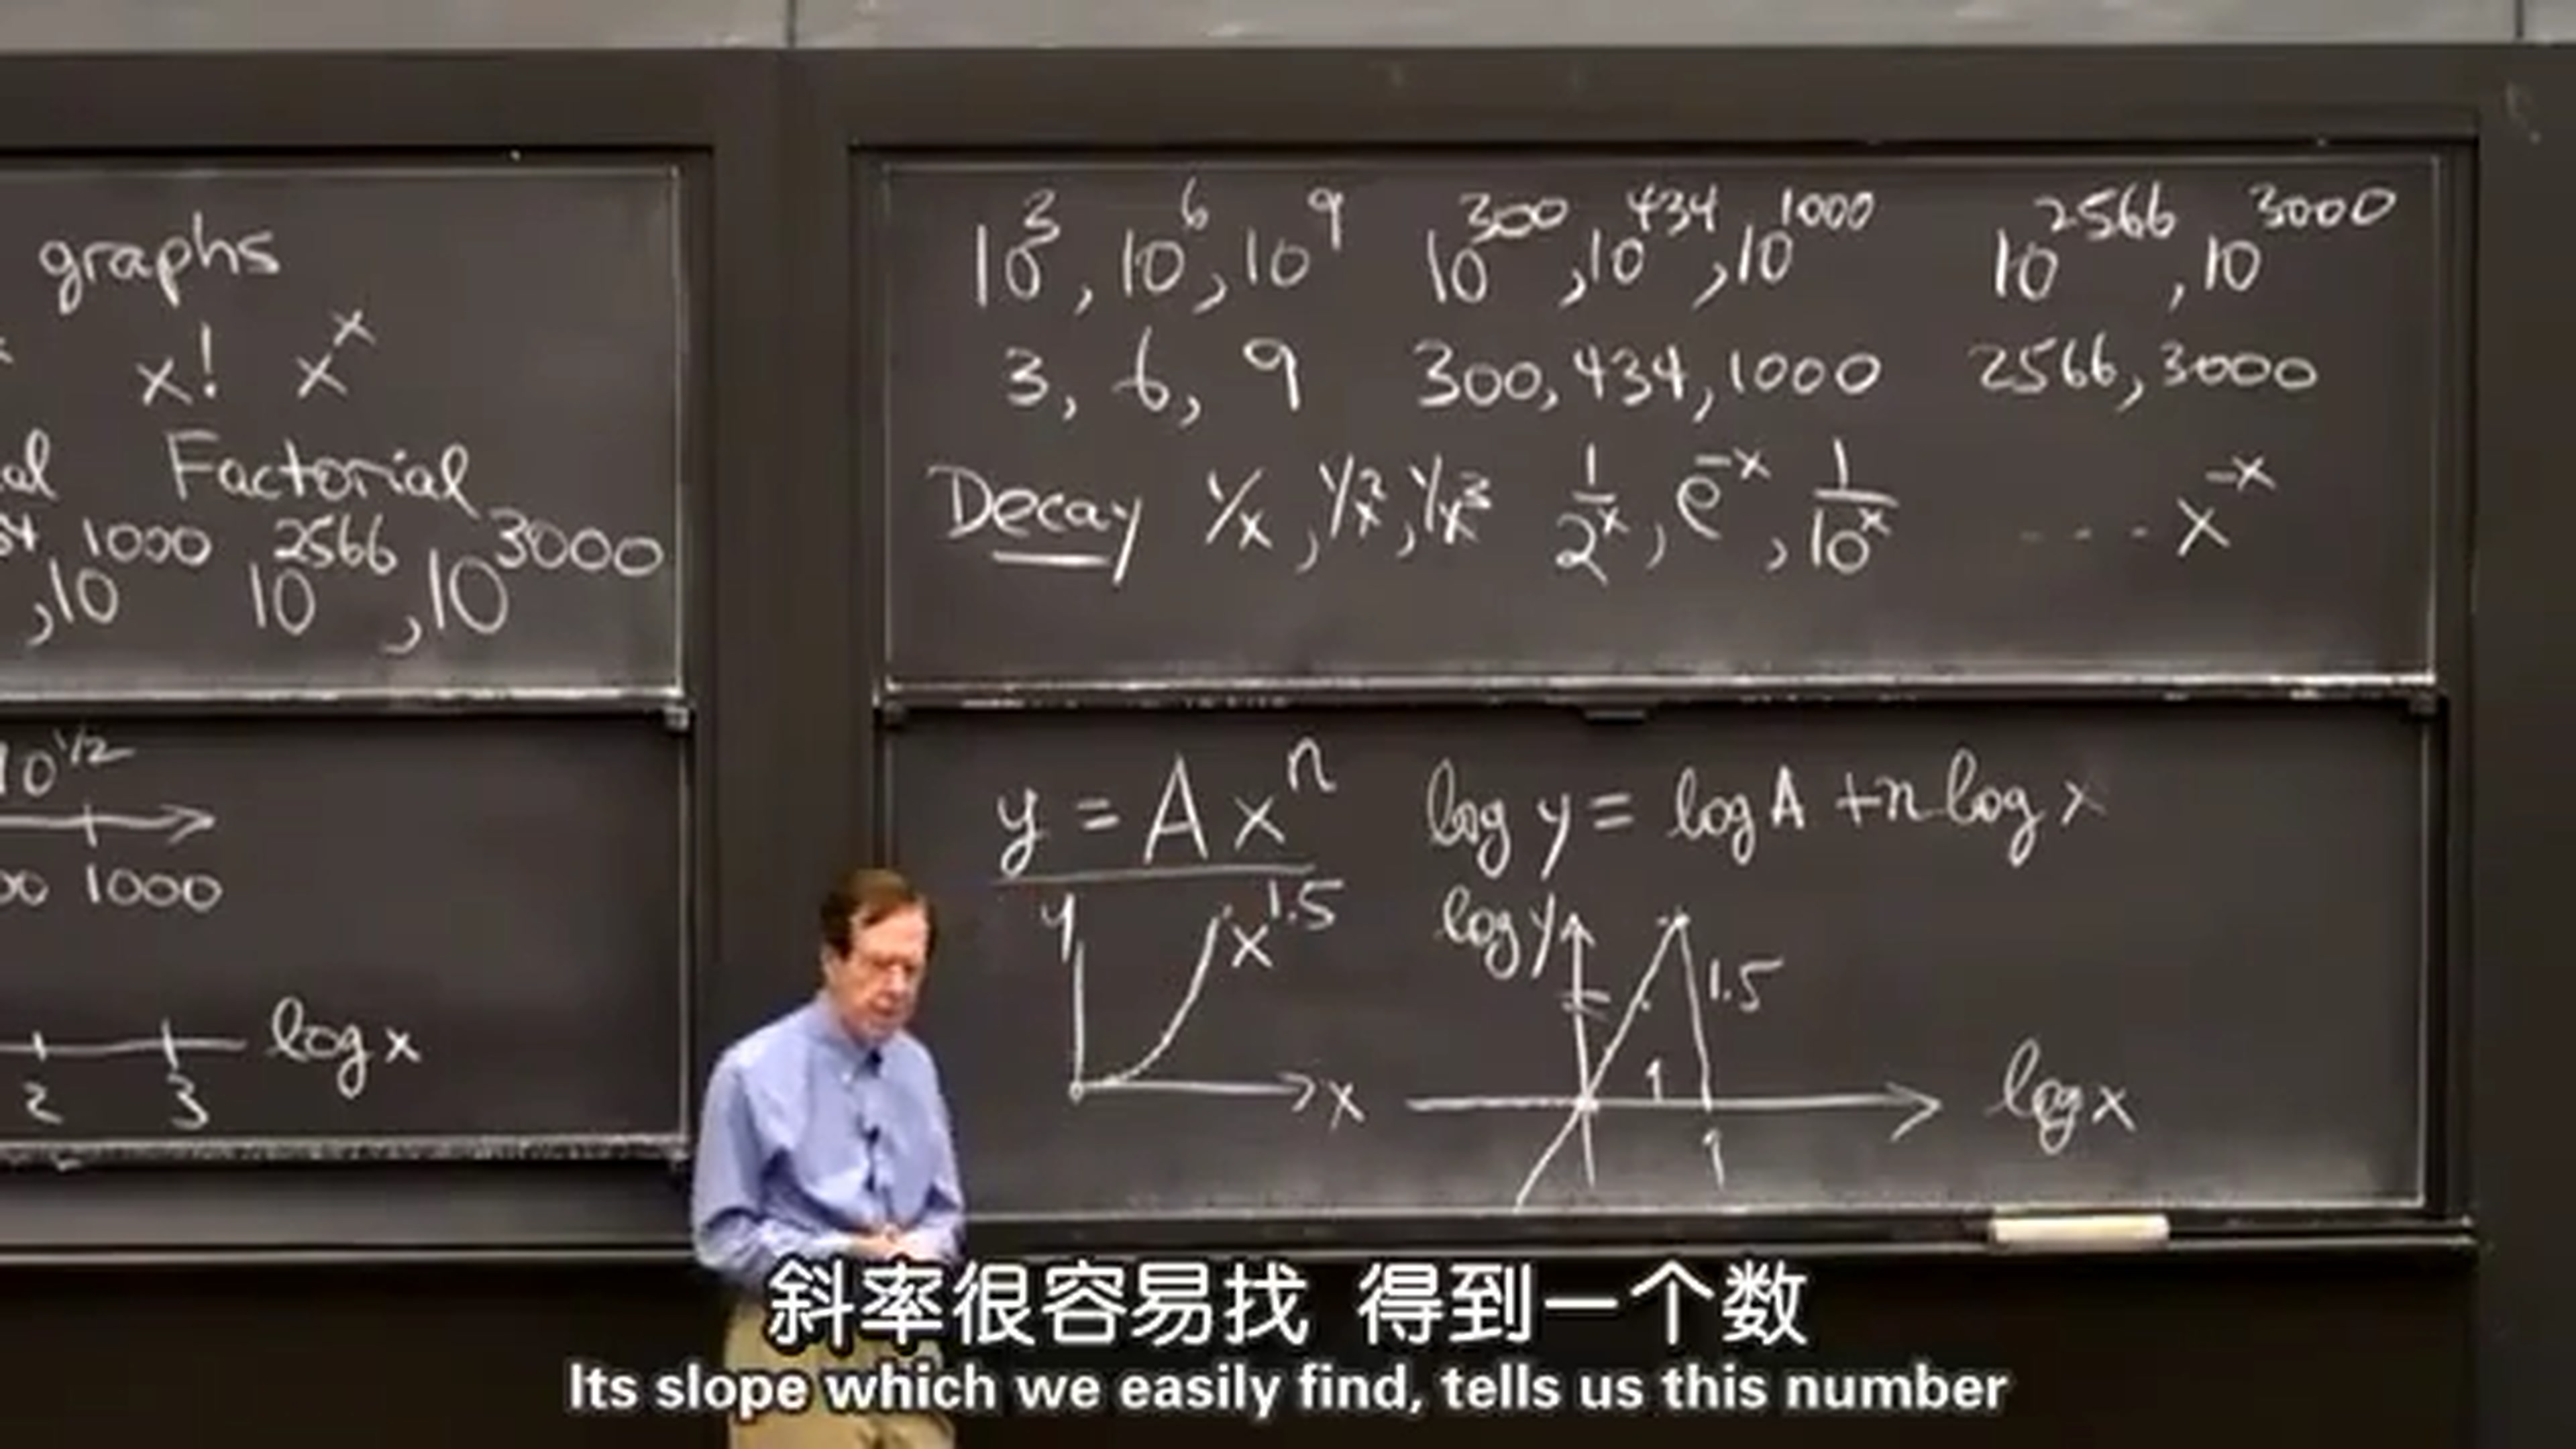 graphs
x! x^x
al Factorial
34 1000 2566 3000
,10 10 ,10
10^1/2
00 1000
log x
2 3
10^3, 10^6, 10^9 10^300, 10^434, 10^1000 10^2566, 10^3000
3, 6, 9 300, 434, 1000 2566, 3000
Decay 1/x, 1/x^2, 1/x^3 1/2^x, e^-x, 1/10^x ... x^-x
y = A x^n log y = log A + n log x
y x^1.5 log y 1.5
x 1 log x
1
斜率很容易找 得到一个数
Its slope which we easily find, tells us this number